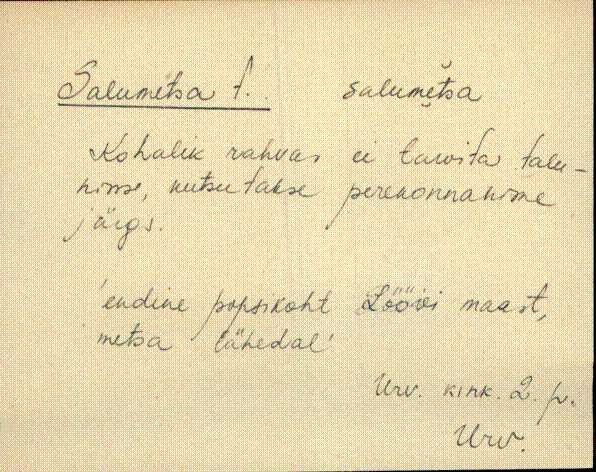 Salumetsa t. salumĕtsa
Kohalik rahvas ei tarvita talu-
nime, kutsutakse perekonnanime
järgi.
'endine popsikoht Löövi maast,
metsa lähedal'
Urv. kink. 2. p.
Urv.